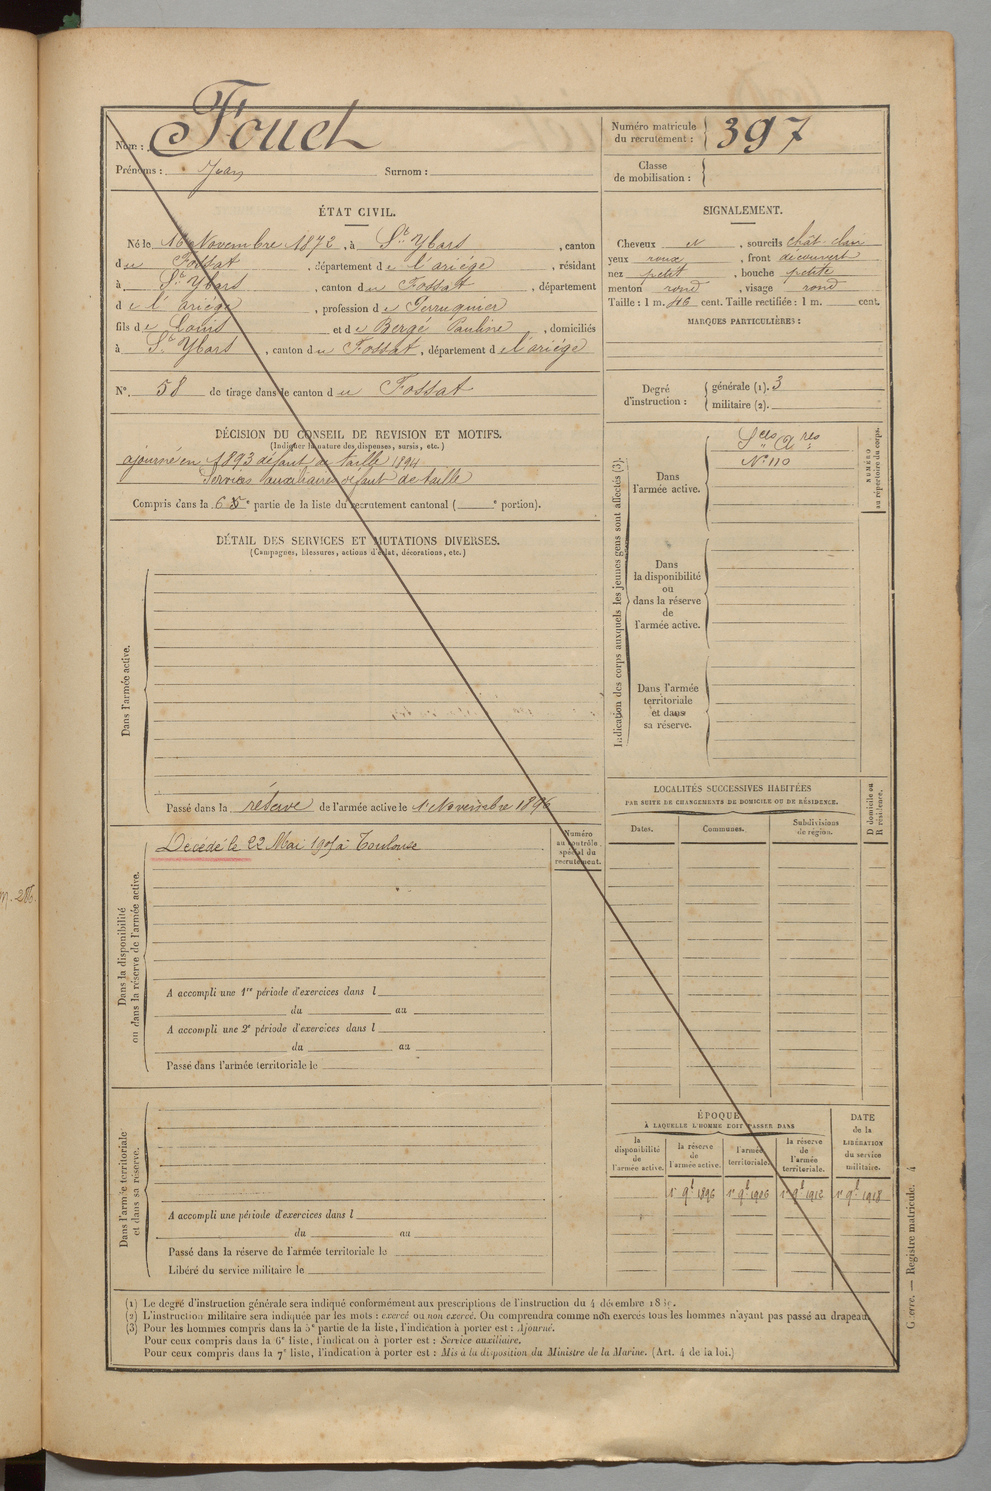 Nom : Fouet
Prénoms : Jean Surnom :
Numéro matricule du recrutement : 397
Classe de mobilisation :
ÉTAT CIVIL.
Né le 16 Novembre 1872, à St Ybars, canton
du Fossat, département de l'ariége, résidant
à St Ybars, canton du Fossat, département
de l'ariége, profession de Perruquier
fils de Louis et de Bergé Pauline, domiciliés
à St Ybars, canton du Fossat, département de l'ariége
No. 58 de tirage dans le canton du Fossat
DÉCISION DU CONSEIL DE REVISION ET MOTIFS.
(Indiquer la nature des dispenses, sursis, etc.)
ajourné en 1893 défaut de taille 1894
Services auxiliaires défaut de taille
Compris dans la 6e partie de la liste du recrutement cantonal ( e portion).
SIGNALEMENT.
Cheveux , sourcils chât. clair
yeux roux, front découvert
nez petit, bouche petite
menton rond, visage rond
Taille : 1 m. 46 cent. Taille rectifiée : 1 m. cent.
MARQUES PARTICULIÈRES :
Degré d'instruction : générale (1). 3
militaire (2).
DÉTAIL DES SERVICES ET MUTATIONS DIVERSES.
(Campagnes, blessures, actions d'éclat, décorations, etc.)
Dans l'armée active.
Passé dans la réserve de l'armée active le 1 Novembre 1896
Indication des corps auxquels les jeunes gens sont affectés (3).
Dans l'armée active.
Sces Ares
No 110
NUMÉRO au répertoire du corps.
Dans la disponibilité ou dans la réserve de l'armée active.
Dans l'armée territoriale et dans sa réserve.
Numéro au contrôle spécial du recrutement.
Dans la disponibilité ou dans la réserve de l'armée active.
Décédé le 22 Mai 1905 à Toulouse
A accompli une 1re période d'exercices dans l
du au
A accompli une 2e période d'exercices dans l
du au
Passé dans l'armée territoriale le
LOCALITÉS SUCCESSIVES HABITÉES
PAR SUITE DE CHANGEMENTS DE DOMICILE OU DE RÉSIDENCE.
Dates. Communes. Subdivisions de région. D domicile ou R résidence.
Dans l'armée territoriale et dans sa réserve.
A accompli une période d'exercices dans l
du au
Passé dans la réserve de l'armée territoriale le
Libéré du service militaire le
ÉPOQUE
À LAQUELLE L'HOMME DOIT PASSER DANS
la disponibilité de l'armée active. la réserve de l'armée active. l'armée territoriale. la réserve de l'armée territoriale. DATE de la LIBÉRATION du service militaire.
1r 9b 1896 1r 9b 1906 1r 9b 1912 1r 9b 1918
(1) Le degré d'instruction générale sera indiqué conformément aux prescriptions de l'instruction du 4 décembre
(2) L'instruction militaire sera indiquée par les mots : exercé ou non exercé. On comprendra comme non exercés tous les hommes n'ayant pas passé au drapeau.
(3) Pour les hommes compris dans la 5e partie de la liste, l'indication à porter est : Ajourné.
Pour ceux compris dans la 6e liste, l'indication à porter est : Service auxiliaire.
Pour ceux compris dans la 7e liste, l'indication à porter est : Mis à la disposition du Ministre de la Marine. (Art. 4 de la loi.)
Guerre. — Registre matricule. 4